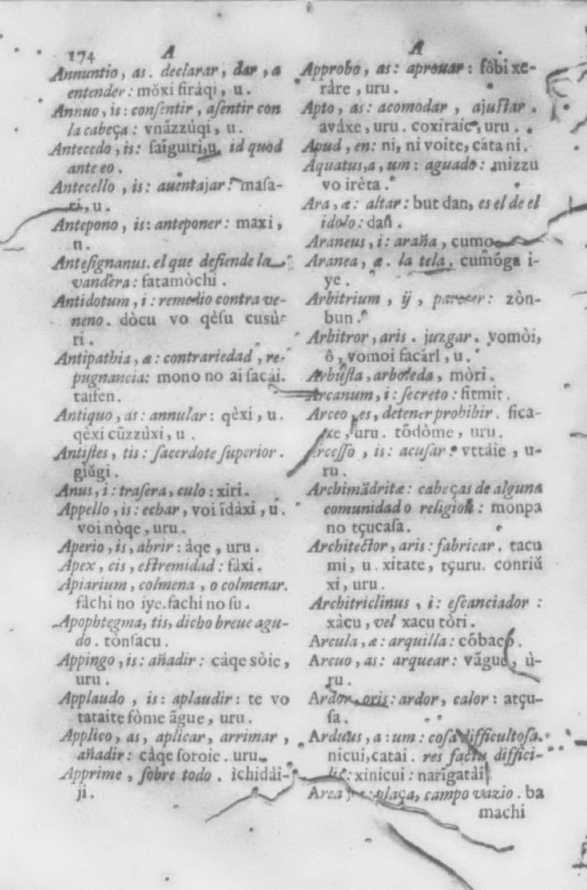 174 A A
Annuntio, as. declarar, dar, a
entender: mòxi firàqi, u.
Annuo, is: consentir, asentir con
la cabeça: vnàzzúqi, u.
Antecedo, is: faiguiri, u, id quod
ante eo.
Antecello, is: auentajar: masa-
ri, u.
Antepono, is: anteponer: maxi,
n.
Antesignanus. el que defiende la
vandera: fatamòchi.
Antidotum, i: remedio contra ve-
neno. dòcu vo qèsu cusù-
ri.
Antipathia, æ: contrariedad, re-
pugnancia: mono no ai sacai.
taisen.
Antiquo, as: annular: qèxi, u.
qèxi cūzzùxi, u.
Antistes, tis: sacerdote superior.
giûgi.
Anus, i: trasera, culo: xiri.
Appello, is: echar, voi idàxi, u.
voi nòqe, uru.
Aperio, is, abrir: àqe, uru.
Apex, cis, estremidad: fàxi.
Apiarium, colmena, o colmenar.
fàchi no iye. fachi no su.
Apophtegma, tis, dicho breue agu-
do. tònsacu.
Appingo, is: añadir: càqe sòie,
uru.
Applaudo, is: aplaudir: te vo
tataite fòme ãgue, uru.
Applico, as, aplicar, arrimar,
añadir: càqe soroie. uru.
Apprime, sobre todo. ichidài-
ji.
Approbo, as: aprouar: fôbi xe-
ràre, uru.
Apto, as: acomodar, ajustar.
avàxe, uru. coxiraie, uru.
Apud, en: ni, ni voite, cáta ni.
Aquatus, a, um: aguado: mizzu
vo irèta.
Ara, æ: altar: but dan, es el de el
idolo: dañ.
Araneus, i: araña, cumo
Aranea, æ. la tela, cumòga i-
ye.
Arbitrium, ij, parecer: zòn-
bun.
Arbitror, aris. juzgar. vomòi,
ô, vomoi facàri, u.
Arbusta, arboleda, mòri.
Arcanum, i: secreto: fitmit.
Arceo, es, detener prohibir. fica-
xe, uru. tõdòme, uru.
Arcesso, is: acusar: vttàie, u-
ru.
Archimãdritæ: cabeças de alguna
comunidad o religiõ: monpa
no tçucasa.
Architector, aris: fabricar. tacu
mi, u. xitate, tçuru. conriũ
xi, uru.
Architriclinus, i: escanciador:
xàcu, vel xacu tòri.
Arcula, æ: arquilla: cõbaco.
Arcuo, as: arquear: vãgue, ù-
ru.
Ardor, oris: ardor, calor: atçu-
sa.
Arduus, a: um: cosa difficultosa.
nicui, catai. res factu diffici-
lis: xinicui: narigatài
Area, plaça, campo vazio. ba
machi